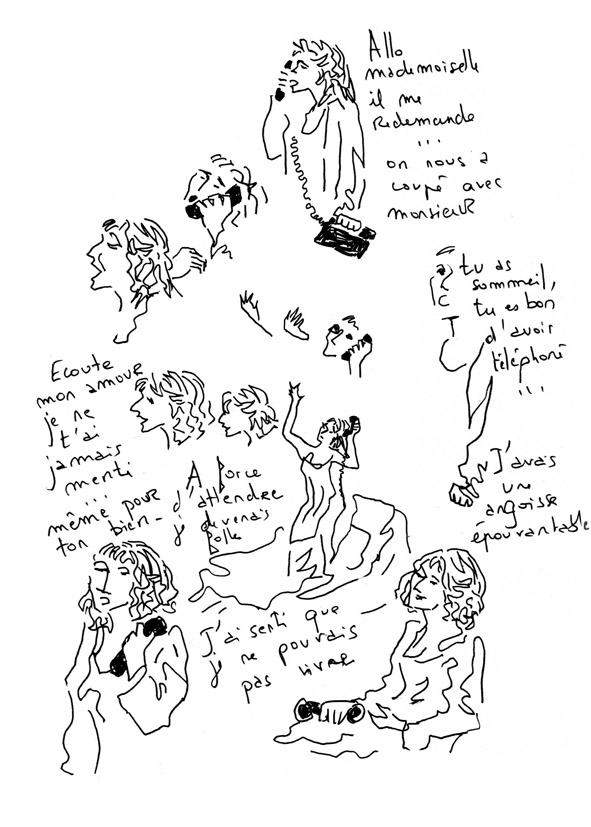 Allo
mademoiselle
il me
redemande
...
on nous a
coupé avec
monsieur
tu as
sommeil,
tu es bon
d'avoir
téléphoné
...
Ecoute
mon amour
je ne
t'ai
jamais
menti
...
même pour
ton bien_
A force
d'attendre
je devenais
folle
J'avais
une
angoisse
épouvantable
J'ai senti que
je ne pouvais
pas vivre